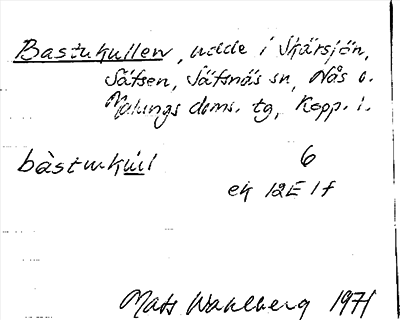 Bastukullen, udde i Skärsjön,
Säfsen, Säfsnäs sn, Nås o.
Malungs doms. tg, Kopp. l.
bàstukúll 6
ek 12E 1f
Mats Wahlberg 1971